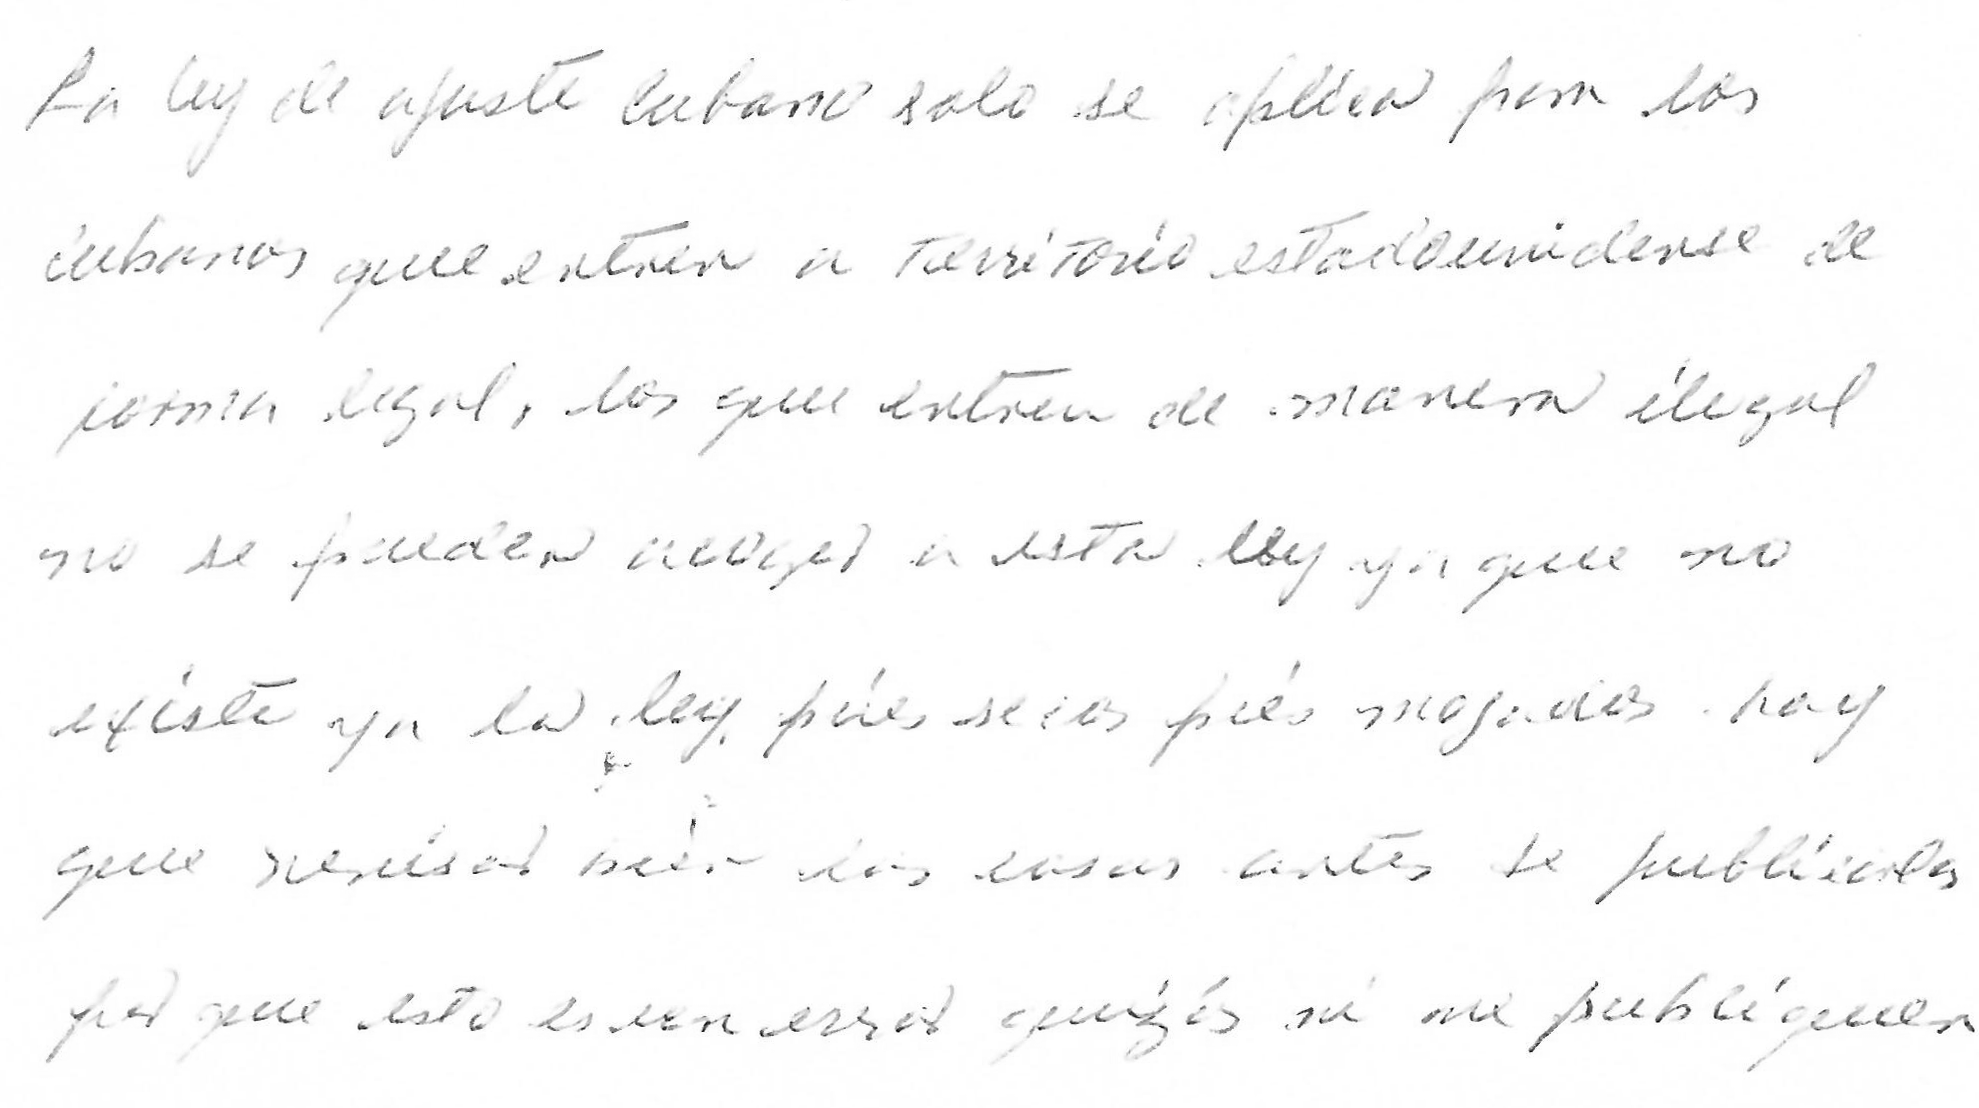 La ley de ajuste cubano solo se aplica para los
cubanos que entren a territorio estadounidense de
forma legal, los que entren de manera ilegal
no se pueden acoger a esta ley ya que no
existe ya la ley, pies secos pies mojados hay
que revisar bien las cosas antes de publicarlas
por que esto es un error quizás ni me publiquen